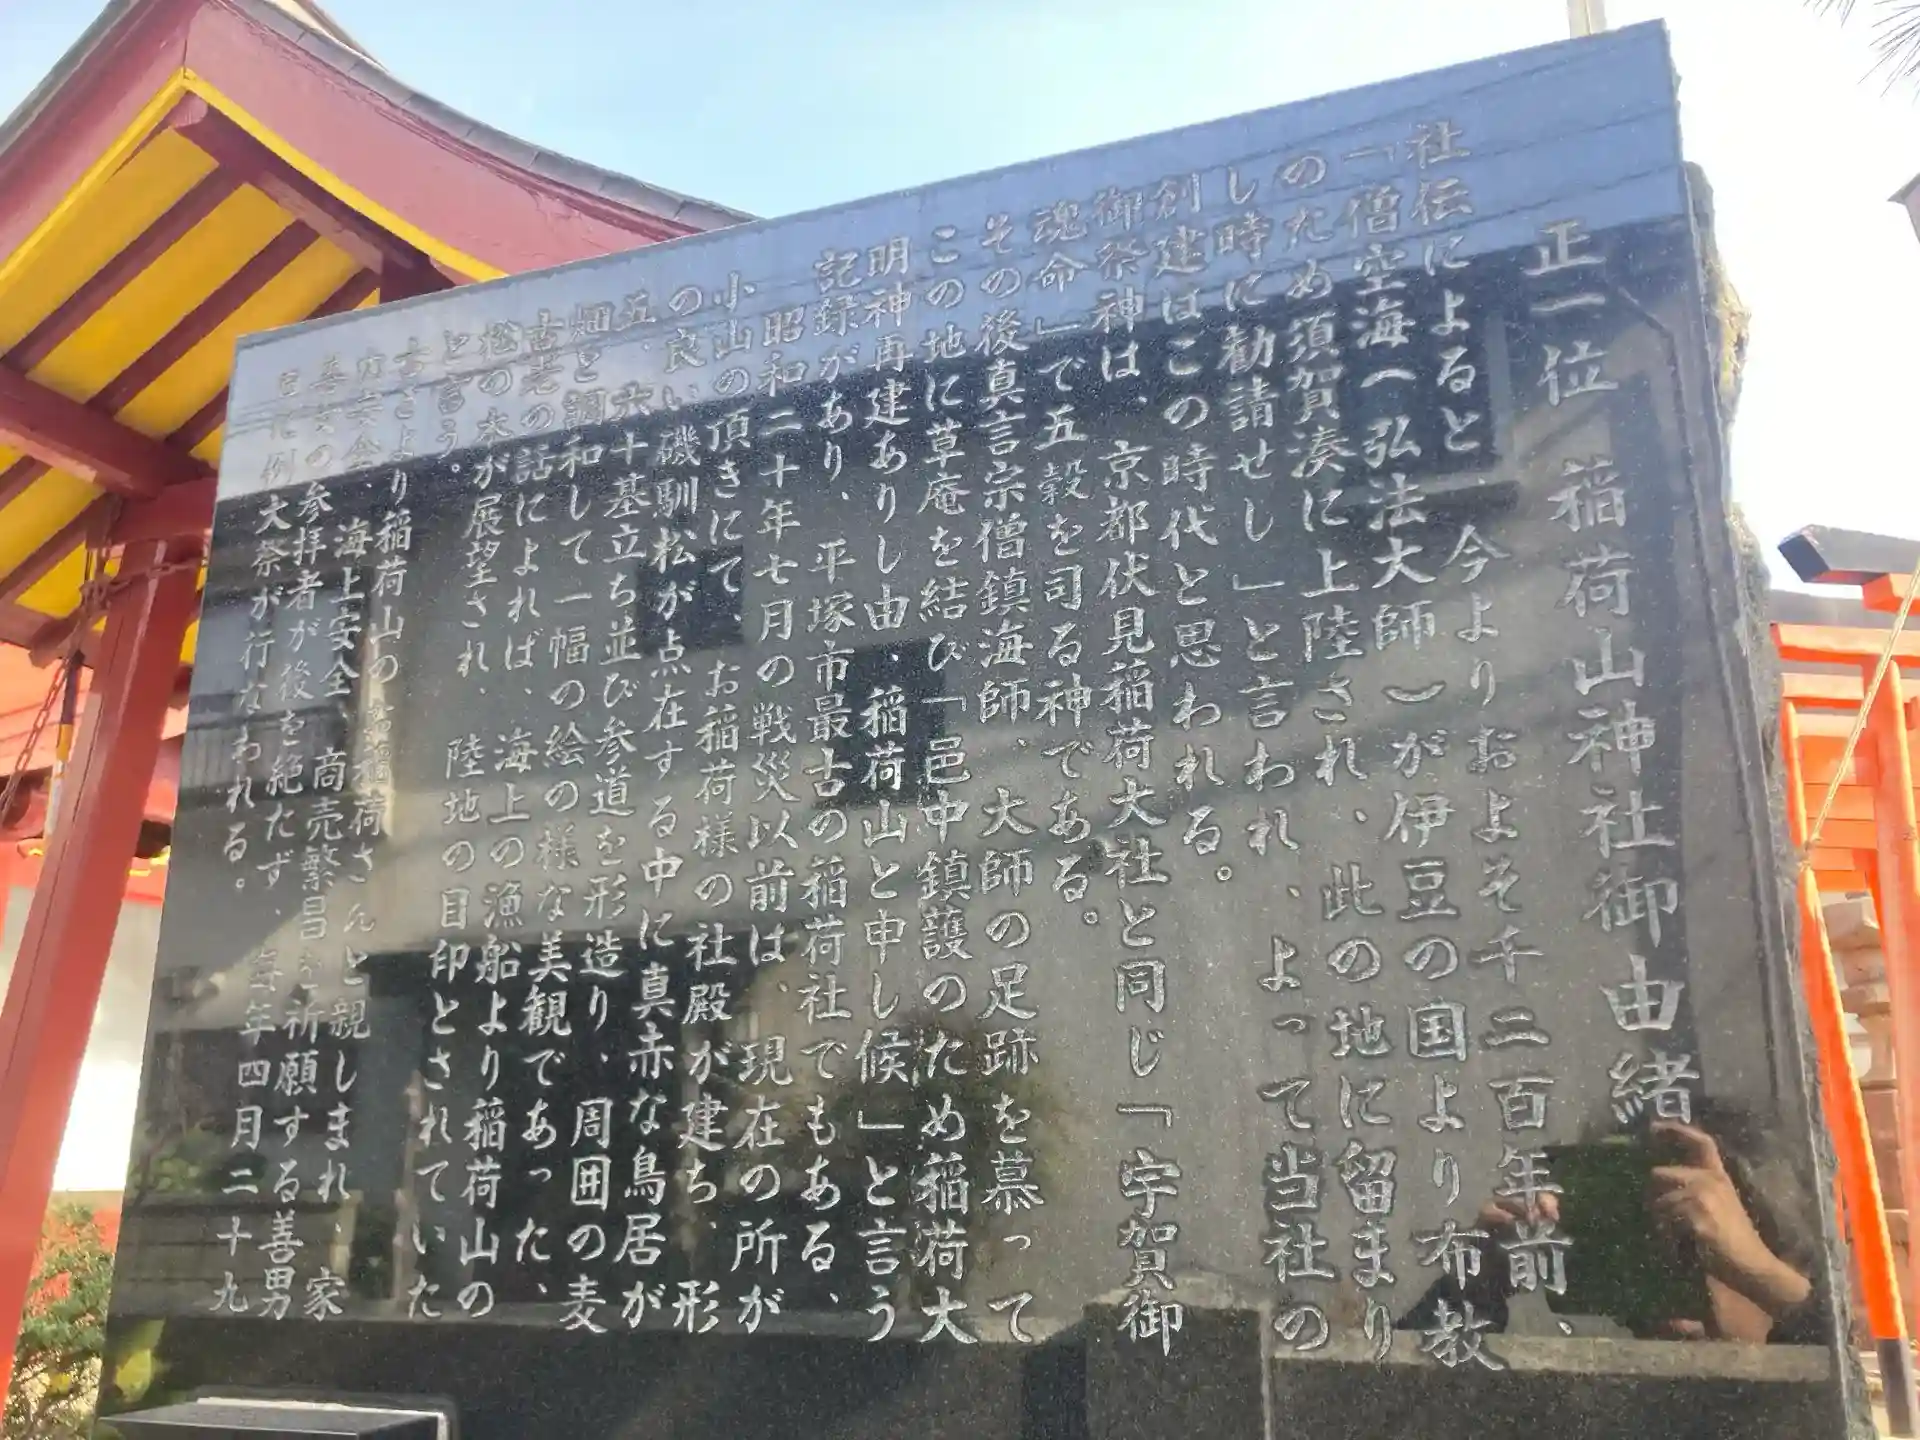 正一位 稲荷山神社御由緒
社伝によると、今よりおよそ千二百年前、
「僧空海(弘法大師)が伊豆の国より布教
のため須賀湊に上陸され、此の地に留まり
し時に勧請せし」と言われ、よって当社の
創建はこの時代と思われる。
御祭神は、京都伏見稲荷大社と同じ「宇賀御
魂命」で五穀を司る神である。
その後真言宗僧鎮海師、大師の足跡を慕って
この地に草庵を結び「邑中鎮護のため稲荷大
明神再建ありし由、稲荷山と申し候」と言う
記録があり、平塚市最古の稲荷社でもある、
昭和二十年七月の戦災以前は、現在の所が
小山の頂きにて、お稲荷様の社殿が建ち、形
の良い磯馴松が点在する中に真赤な鳥居が
五、六十基立ち並び参道を形造り、周囲の麦
畑と調和して一幅の絵の様な美観であった、
古老の話によれば、海上の漁船より稲荷山の
松の木が展望され、陸地の目印とされていた
と言う。
古さより稲荷山のお稲荷さんと親しまれ、家
内安全、海上安全、商売繁昌を祈願する善男
善女の参拝者が後を絶たず、毎年四月二十九
日に例大祭が行なわれる。